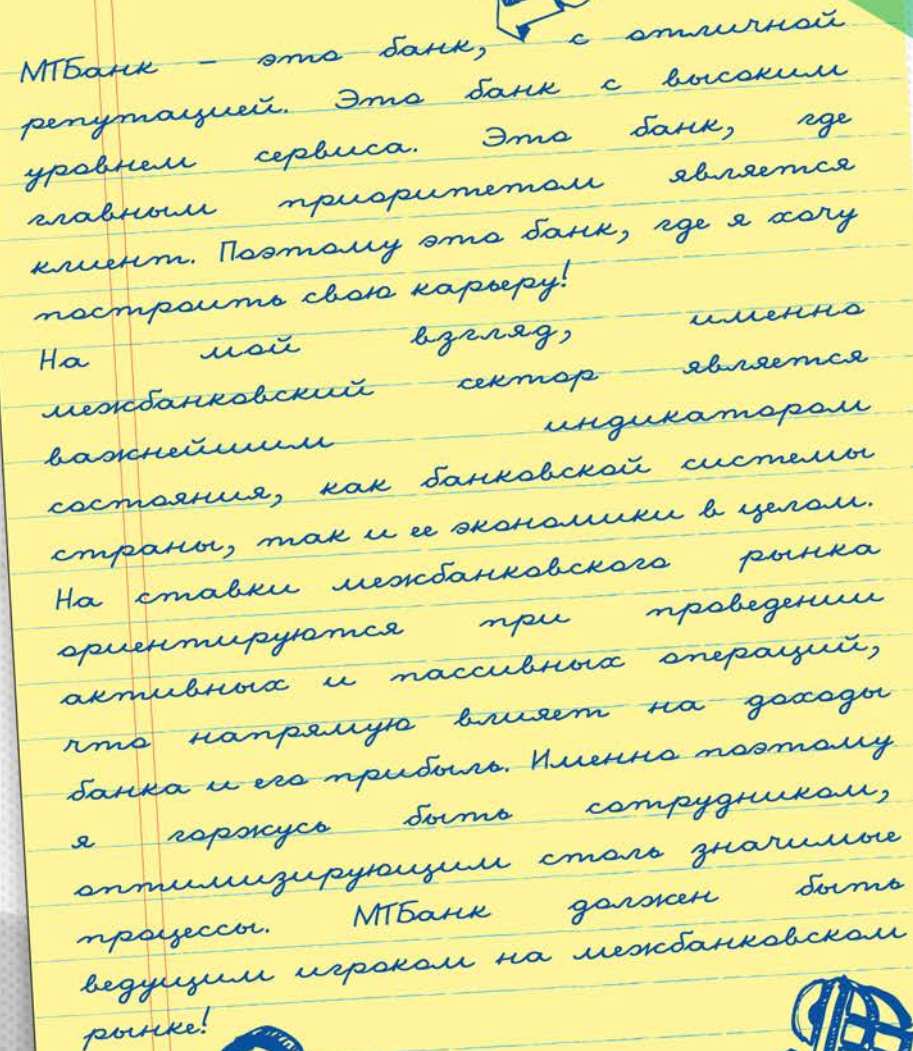 МТБанк – это банк, с отличной
репутацией. Это банк с высоким
уровнем сервиса. Это банк, где
главным приоритетом является
клиент. Поэтому это банк, где я хочу
построить свою карьеру!
На мой взгляд, именно
межбанковский сектор является
важнейшим индикатором
состояния, как банковской системы
страны, так и ее экономики в целом.
На ставки межбанковского рынка
ориентируются при проведении
активных и пассивных операций,
что напрямую влияет на доходы
банка и его прибыль. Именно поэтому
я горжусь быть сотрудником,
оптимизирующим столь значимые
процессы. МТБанк должен быть
ведущим игроком на межбанковском
рынке!